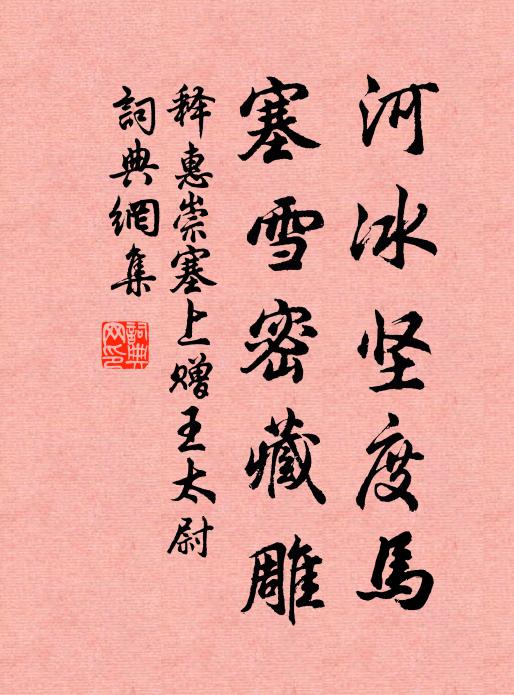 河冰坚度馬
塞雪密藏雕
释惠崇塞上赠王太尉
詞典網集
詞典網印